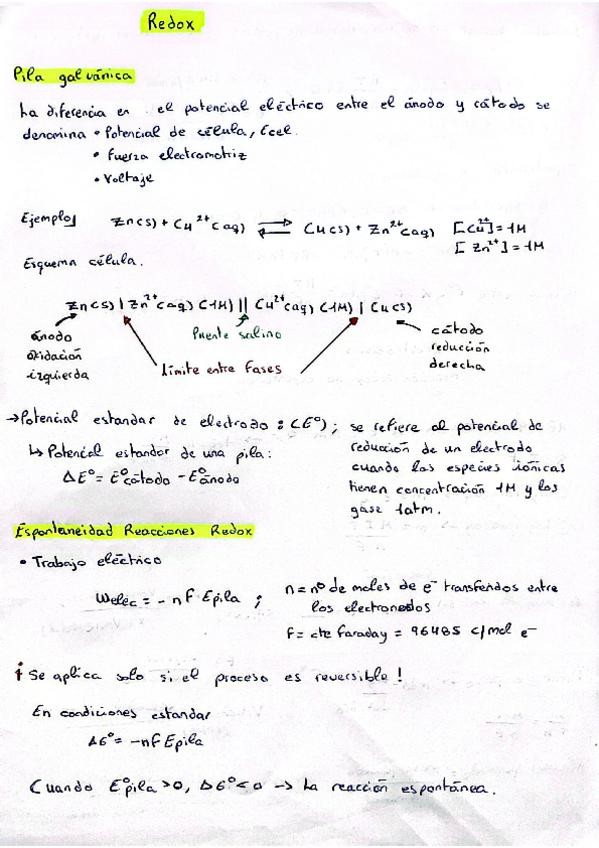 Redox
Pila galvánica
La diferencia en el potencial eléctrico entre el ánodo y cátodo se
denomina • Potencial de célula, Ecel.
• Fuerza electromotriz
• Voltaje
Ejemplo] Zn(s) + Cu²⁺(aq) ⇌ Cu(s) + Zn²⁺(aq) [Cu²⁺] = 1M
[Zn²⁺] = 1M
Esquema célula.
Zn(s) | Zn²⁺(aq) (1M) || Cu²⁺(aq) (1M) | Cu(s)
ánodo
oxidación
izquierda
Puente salino
Límite entre fases
cátodo
reducción
derecha
→ Potencial estandar de electrodo : (E°) ; se refiere al potencial de
reducción de un electrodo
cuando las especies iónicas
tienen concentración 1M y los
gase 1atm.
↳ Potencial estandar de una pila:
ΔE° = E°cátodo - E°ánodo
Espontaneidad Reacciones Redox
• Trabajo eléctrico
Welec = - nF Epila ; n = nº de moles de e⁻ transferidos entre
los
F = cte faraday = 96485 C/mol e⁻
¡ Se aplica solo si el proceso es reversible !
En condiciones estandar
ΔG° = -nF Epila
Cuando E°pila > 0, ΔG° < 0 → La reacción espontánea.